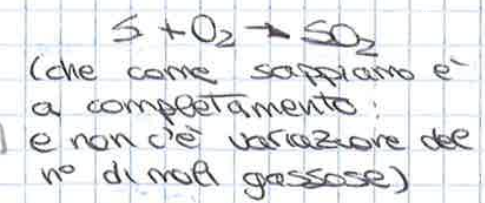 S + O₂ → SO₂
(che come sappiamo e'
a completamento;
e non c'è variazione del
n° di moli gassose)